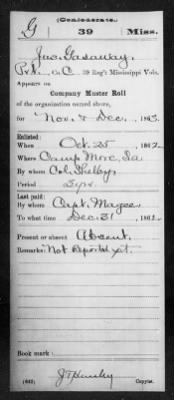 (Confederate.)
G 39 Miss.
Jas. Gasaway,
Pvt., Co. C, 39 Reg't Mississippi Vols.
Appears on
Company Muster Roll
of the organization named above,
for Nov. & Dec., 1863.
Enlisted:
When Oct. 25, 1862.
Where Camp Moore, La
By whom Col. Shelby,
Period 3 yrs.
Last paid:
By whom Capt. Magee,
To what time Dec. 31, 1862.
Present or absent Absent.
Remarks: Not Reported yet.
Book mark:
(642)
Copyist.